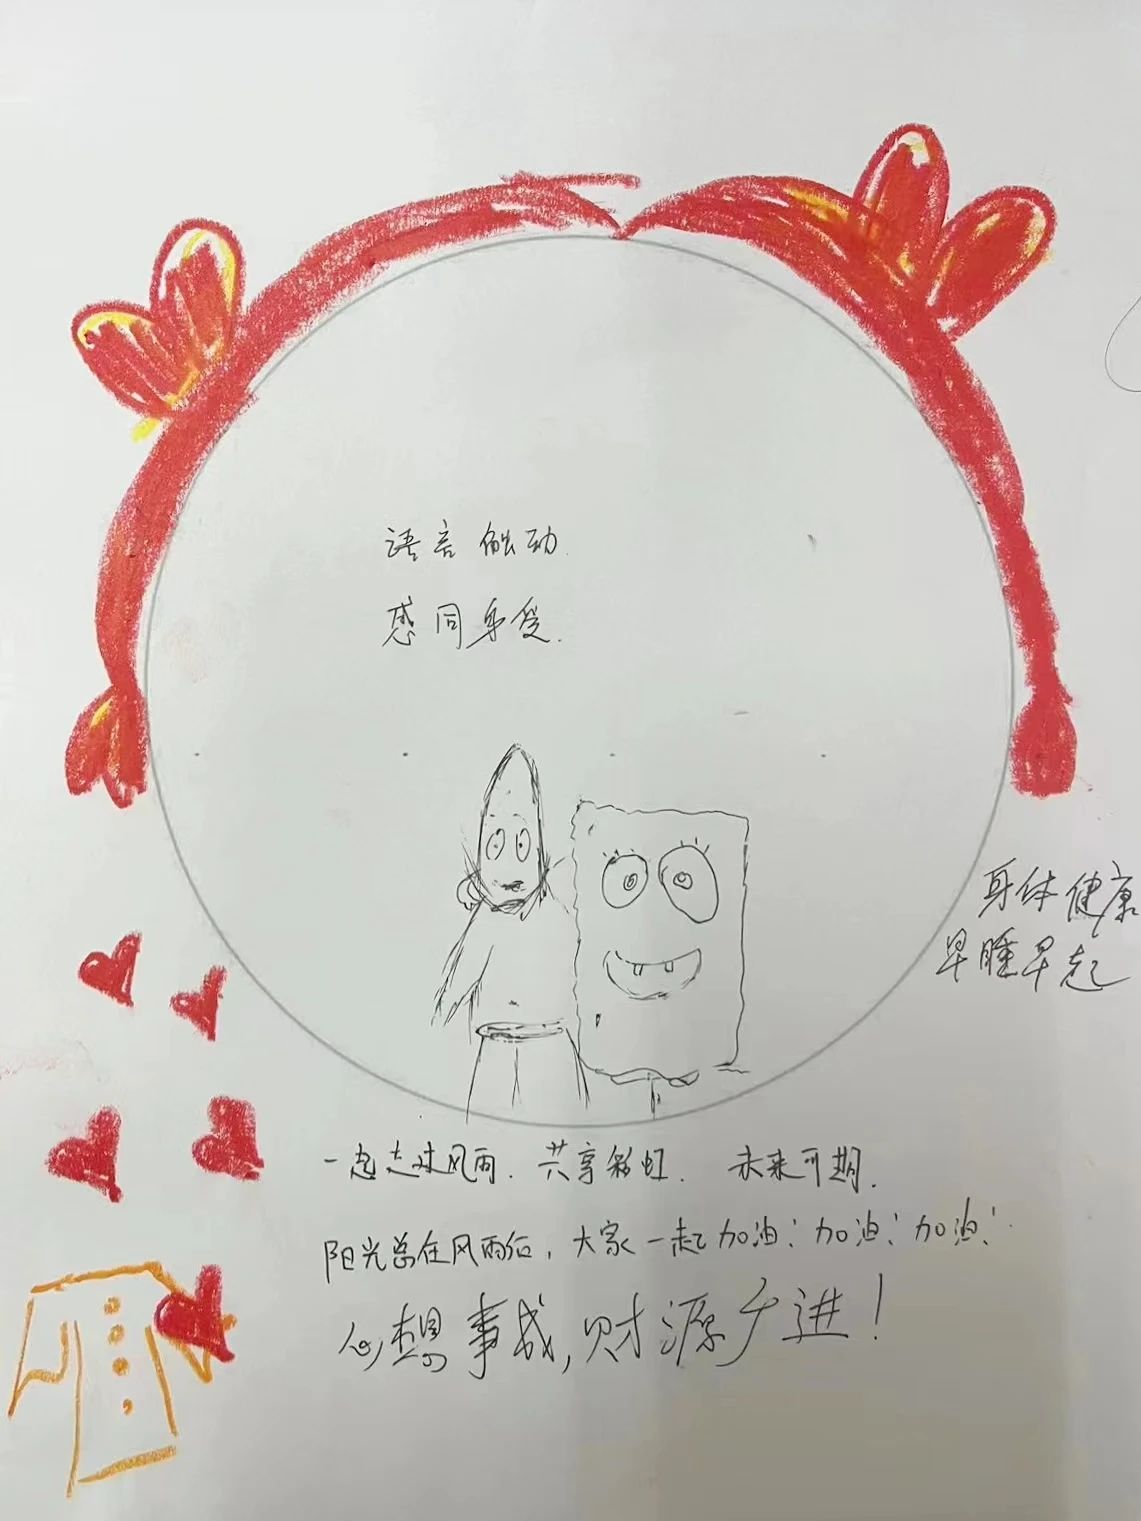 语言触动.
感同身受.
身体健康
早睡早起
一起走过风雨. 共享彩虹. 未来可期.
阳光总在风雨后, 大家一起加油! 加油! 加油!
心想事成, 财源广进!